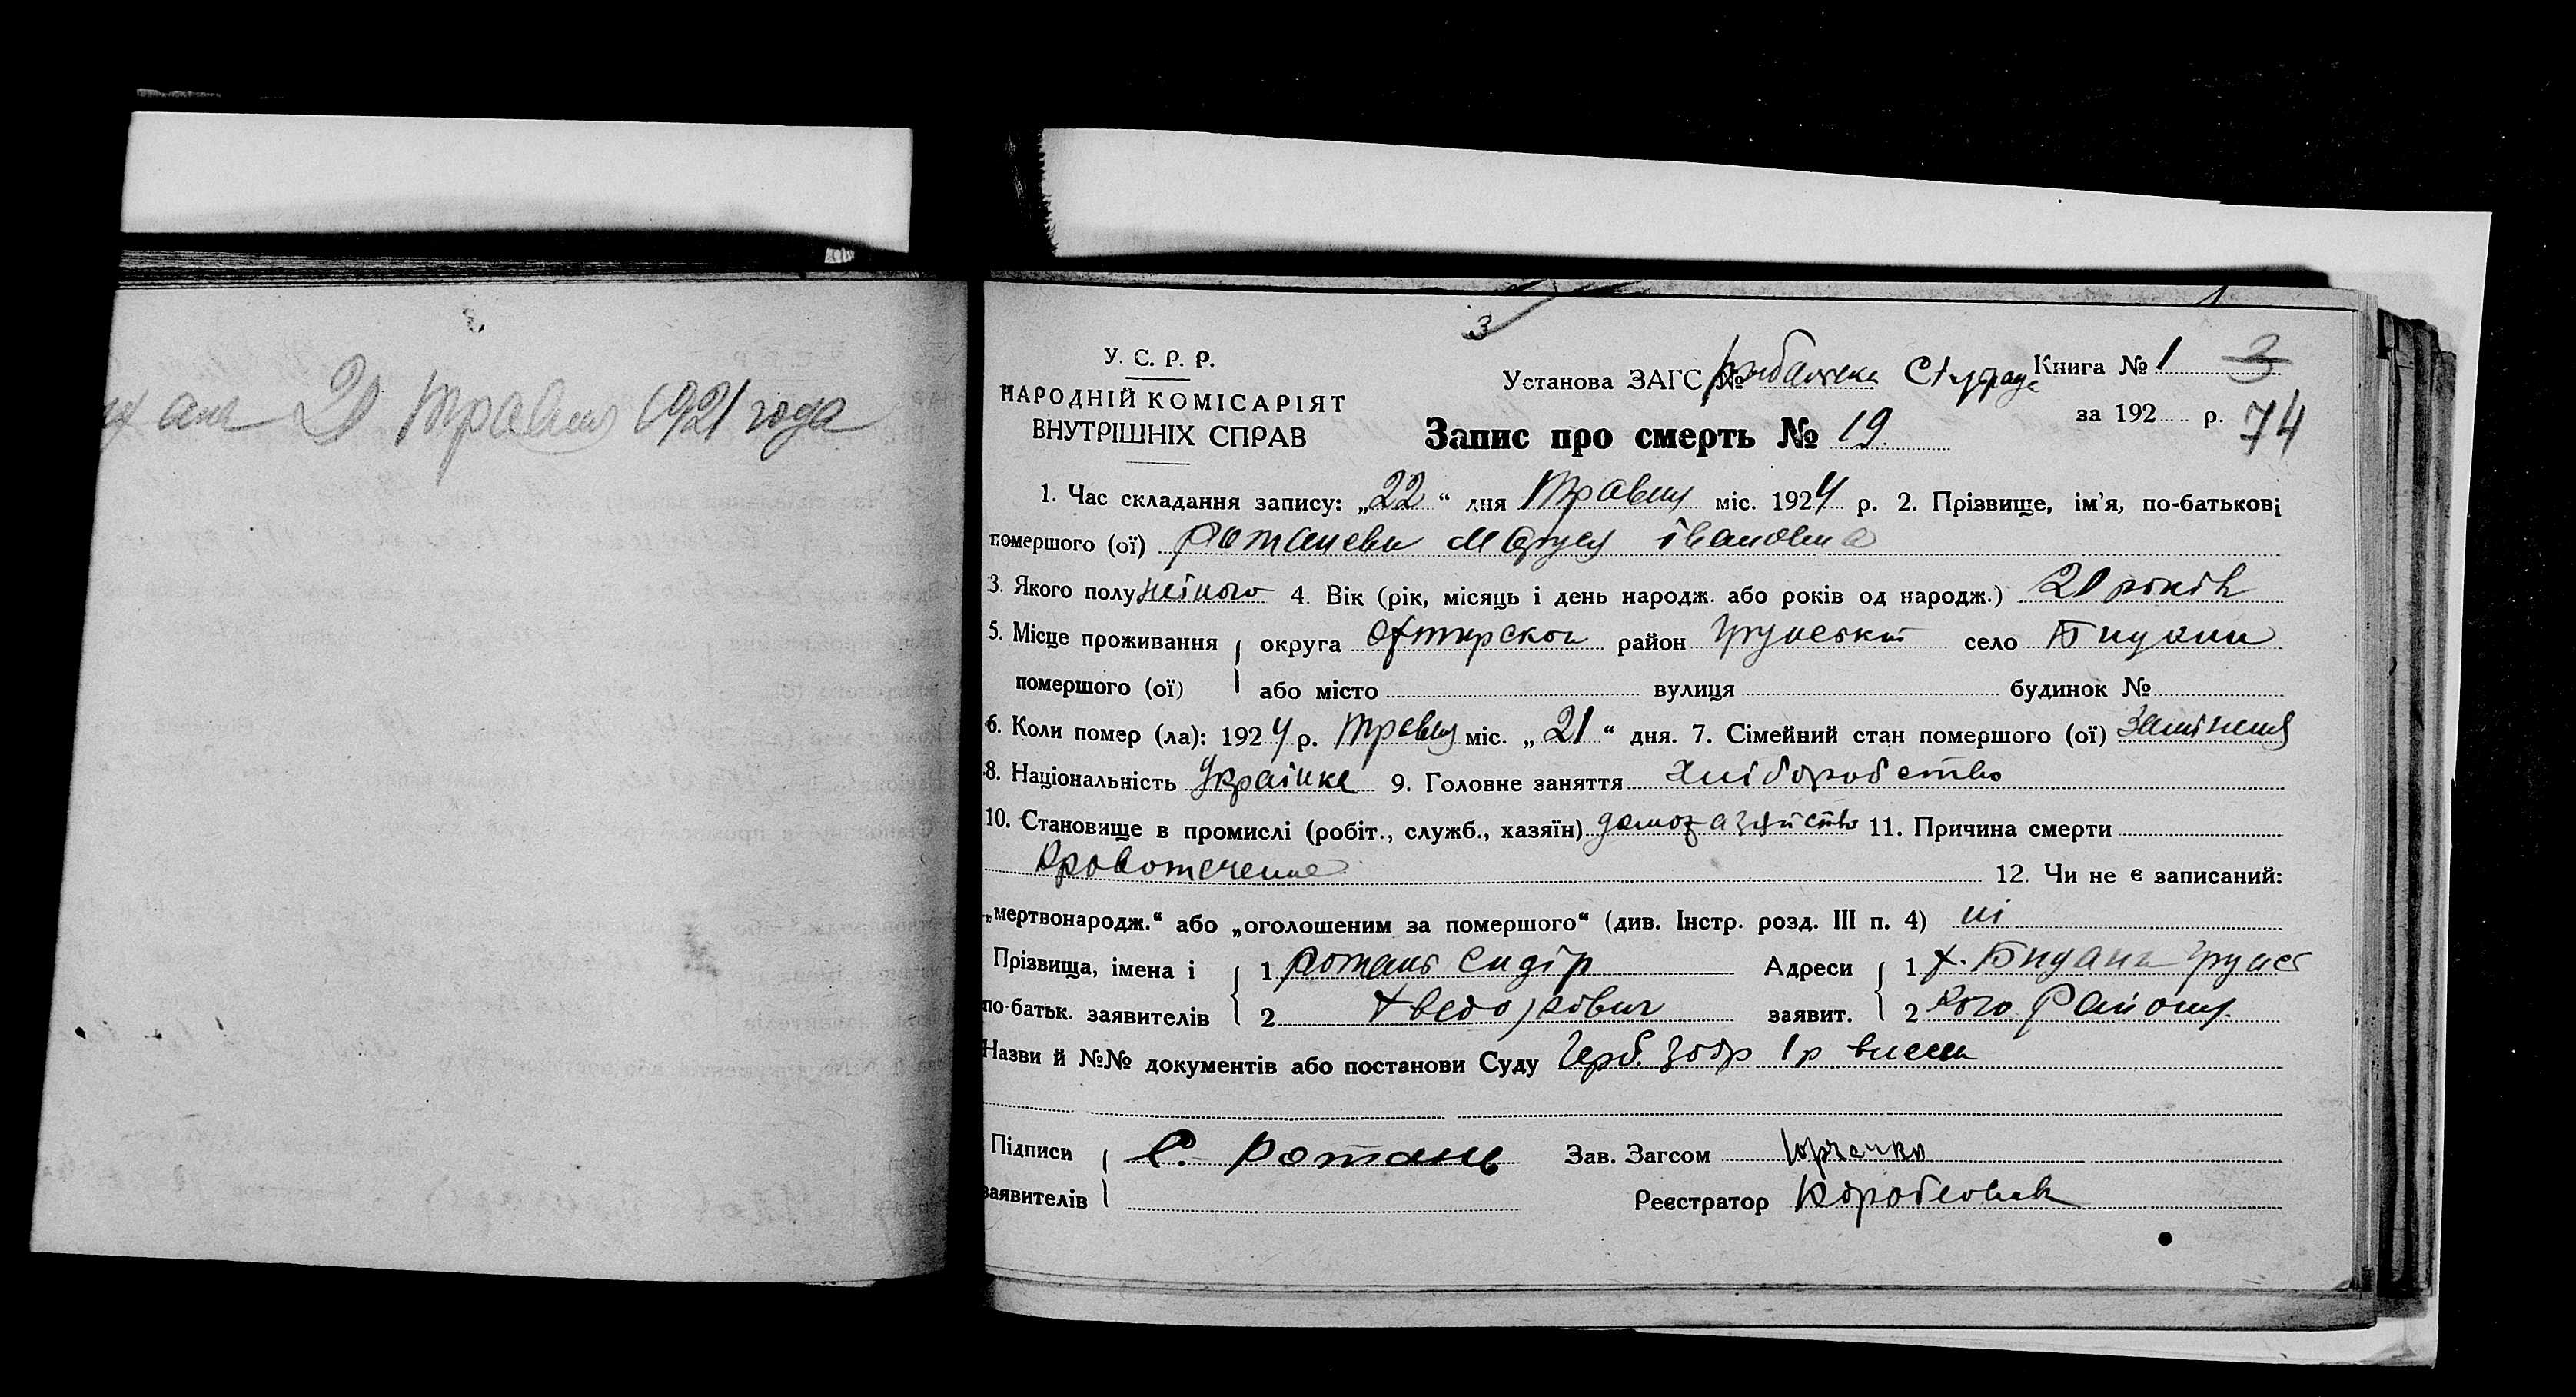 ана 21 Травня 1921 года
3
У. С. Р. Р.
НАРОДНІЙ КОМІСАРІЯТ
ВНУТРІШНІХ СПРАВ
Установа ЗАГС №
Книга № 1 3
за 192 р. 74
Запис про смерть № 19
1. Час складання запису: „22“ дня Травня міс. 1924 р. 2. Прізвище, ім'я, по-батькові
помершого (ої) Маруся івановна
3. Якого полу 4. Вік (рік, місяць і день народж. або років од народж.) 20 років
5. Місце проживання округа район село
помершого (ої) або місто вулиця будинок №
6. Коли помер (ла): 1924 р. Травня міс. „21“ дня. 7. Сімейний стан помершого (ої) Заміжня
8. Національність Українка 9. Головне заняття Хліборобство
10. Становище в промислі (робіт., служб., хазяїн) 11. Причина смерти
Кровотечение 12. Чи не є записаний:
„мертвонародж.“ або „оголошеним за помершого“ (див. Інстр. розд. III п. 4) ні
Прізвища, імена і 1 Ротань Сидір Адреси 1 х.
по-батьк. заявителів 2 Хведорович заявит. 2 кого Района
Назви й №№ документів або постанови Суду Герб. збор 1 р
Підписи С. Ротань Зав. Загсом Юрченко
заявителів Реєстратор